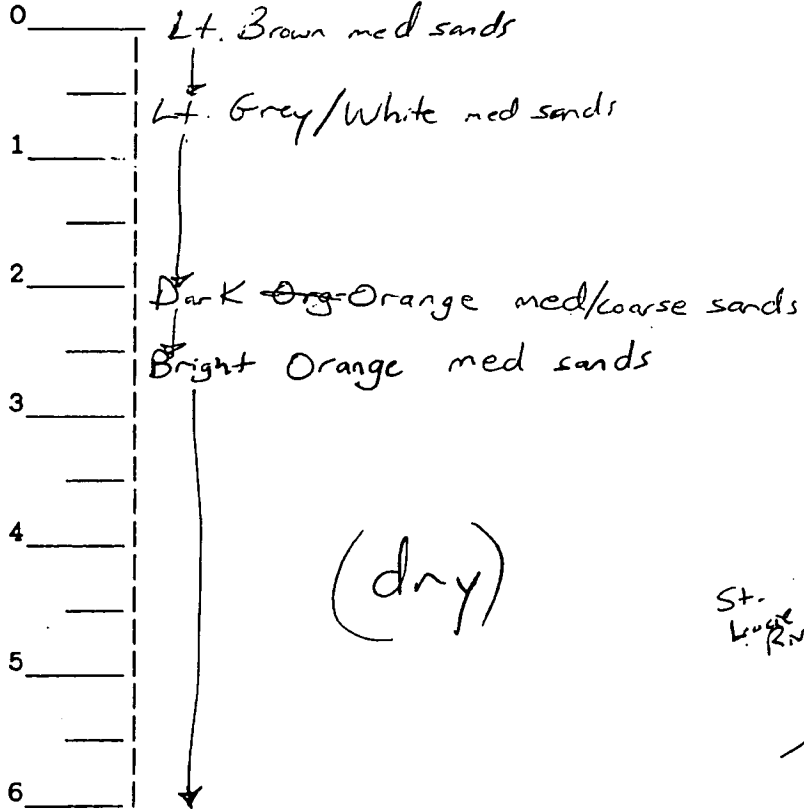 0 Lt. Brown med sands
Lt. Grey/White med sands
1
2 Dark Org Orange med/coarse sands
Bright Orange med sands
3
4 (dry)
St.
Lucie
5
6